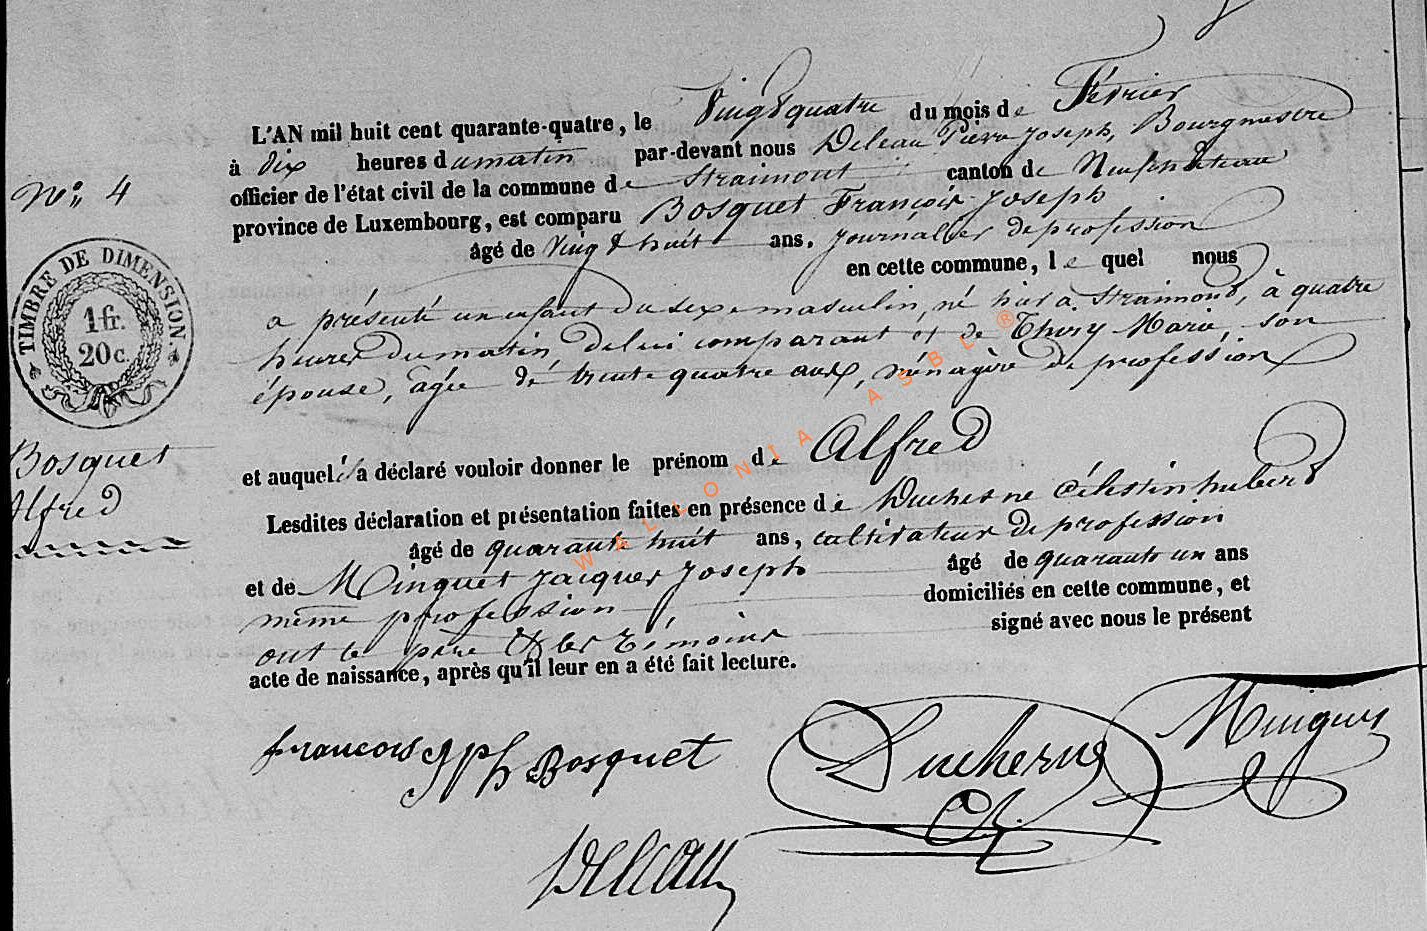 L'AN mil huit cent quarante-quatre, le Vingt quatre du mois de Février
à dix heures du matin par-devant nous Deleau Pierre Joseph, Bourgmestre
officier de l'état civil de la commune de Straimont canton de Neufchâteau
N° 4
province de Luxembourg, est comparu Bosquet François Joseph
âgé de Vingt huit ans. journalier de profession
en cette commune, le quel nous
TIMBRE DE DIMENSION
1 fr.
20 c.
a présenté un enfant du sexe masculin, né hier à Straimond, à quatre
heures du matin, de lui comparant et de Thiry Marie, son
épouse, âgée de trente quatre ans, ménagère de profession
et auquel il a déclaré vouloir donner le prénom de Alfred
Bosquet
Alfred
Lesdites déclaration et présentation faites en présence de Duchesne Célestin hubert
âgé de quarante huit ans, cultivateur de profession
et de Minguet Jacques Joseph âgé de quarante un ans
même profession domiciliés en cette commune, et
ont le père & les témoins signé avec nous le présent
acte de naissance, après qu'il leur en a été fait lecture.
françois Jph Bosquet
Duchesne
Minguet
Deleau
WALLONIA ASBL ®